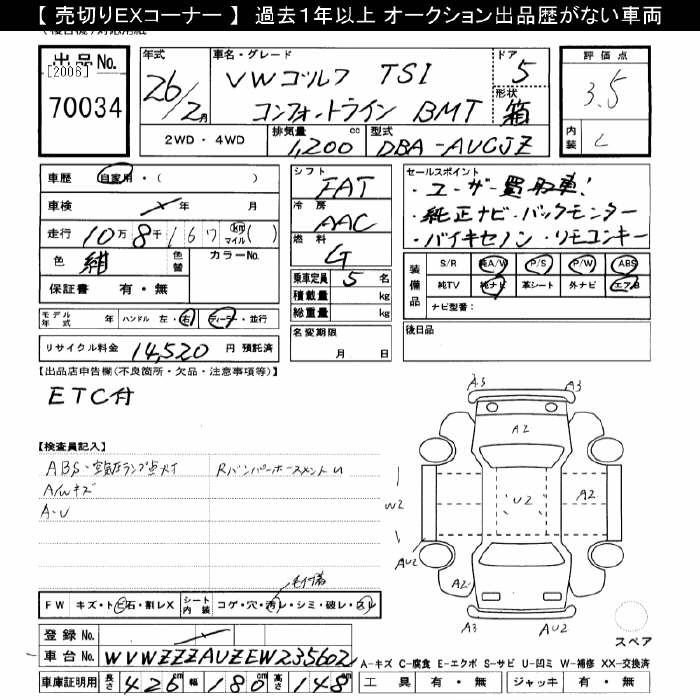 【 売切りEXコーナー 】 過去１年以上 オークション出品歴がない車両
出品No.
[2006]
70034
年式
26/2月
車名・グレード
VWゴルフ TSI
コンフォートライン BMT
ドア
5
形状
箱
2WD・4WD
排気量
1,200 cc
型式
DBA-AUCJZ
評価点
3.5
内装
C
車歴
自家用・(
車検
年 月
走行
10万8千167 km マイル ( )
色
紺
色替
カラーNo.
保証書 有・無
モデル年式 年 ハンドル 左・右 ディーラー・並行
リサイクル料金 14,520 円 預託済
シフト
FAT
冷房
AAC
燃料
G
乗車定員 5 名
積載量 kg
総重量 kg
名変期限
月 日
セールスポイント
・ユーザー買取車!
・純正ナビ・バックモニター
・バイキセノン・リモコンキー
装備品
S/R 純A/W P/S P/W ABS
純TV 純ナビ 革シート 外ナビ エアB
ナビ型番:
後日品
【出品店申告欄(不良箇所・欠品・注意事項等)】
ETC付
【検査員記入】
ABS・空気圧ランプ点灯
A/Wキズ
A・U
A3
A3
A2
U2
A2
W2
AU2
A2
A3
A3
スペア
FW キズ・トビ石・割レX
シート内装 コゲ・穴・汚レ・シミ・破レ・スレ
登録No.
車台No. WVWZZZAUZEW235602
車庫証明用 長さ 426cm 幅 180cm 高さ 148cm
A-キズ C-腐食 E-エクボ S-サビ U-凹ミ W-補修 XX-交換済
工具 有・無 ジャッキ 有・無